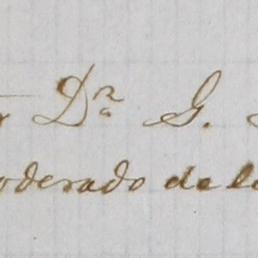 Dr. G.
oderado de lo